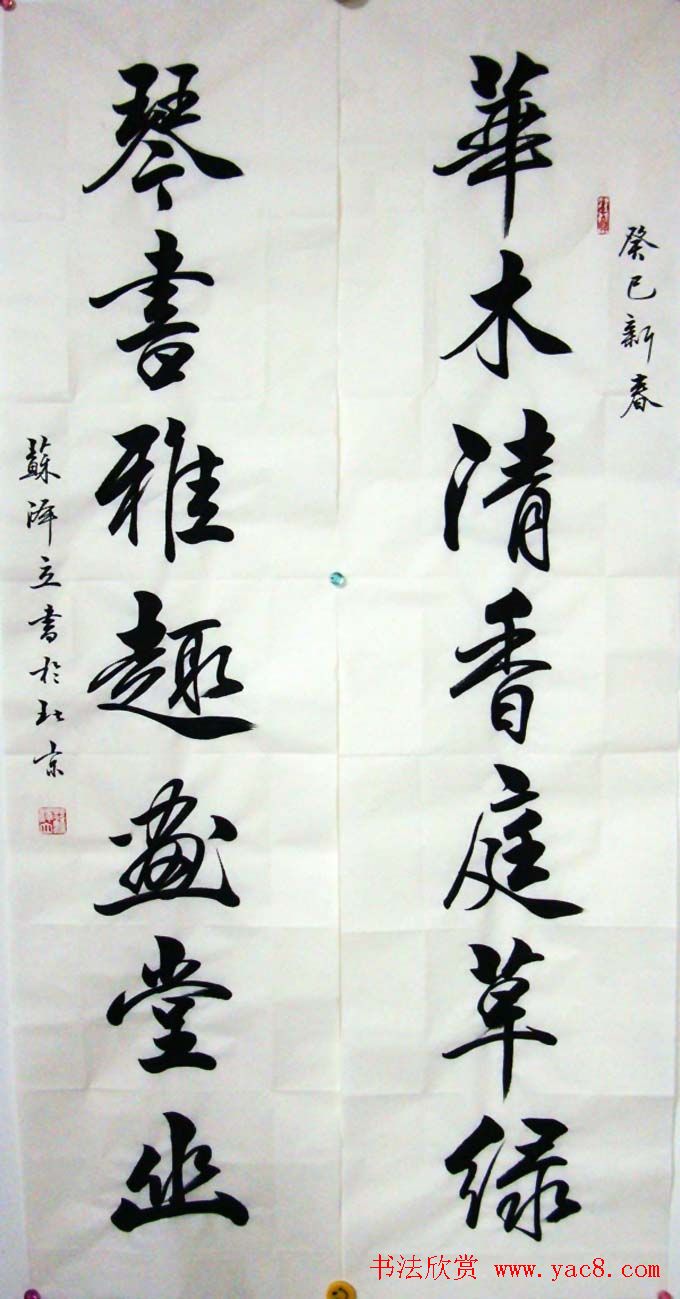 癸巳新春
華木清香庭草绿
琴書雅趣畫堂幽
蘇澤立書於北京
书法欣赏 www.yac8.com